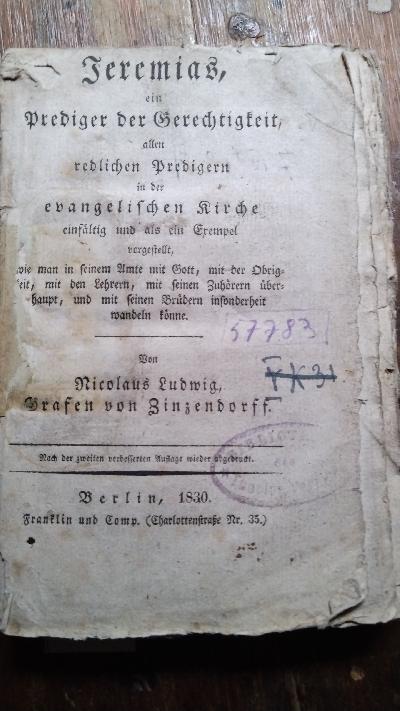 Jeremias,
ein
Prediger der Gerechtigkeit,
allen
redlichen Predigern
in der
evangelischen Kirche
einfältig und als ein Exempel
vorgestellt,
wie man in seinem Amte mit Gott, mit der Obrig-
keit, mit den Lehrern, mit seinen Zuhörern über-
haupt, und mit seinen Brüdern insonderheit
wandeln könne.
57783
Von
Nicolaus Ludwig,
Grafen von Zinzendorff.
Nach der zweiten verbesserten Auflage wieder abgedruckt.
Berlin, 1830.
Franklin und Comp. (Charlottenstraße Nr. 35.)